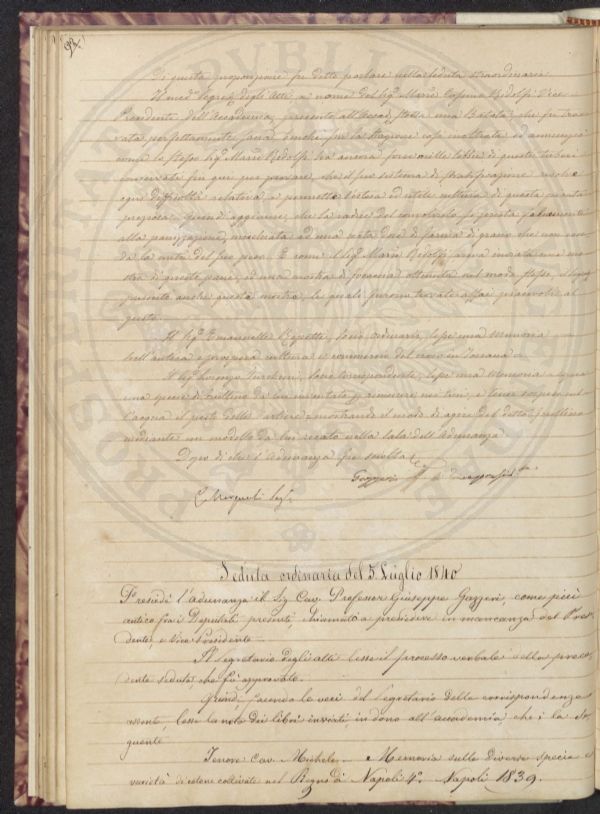 Di questa proposizione fu detto parlare nella seduta straordinaria
Il med. Segret. degli Atti, a nome del Sig. March. Cosimo Ridolfi Vice
Presidente dell'Accademia, presentò all'Accad. stessa una Batata, che fu tro
vata perfettamente sana, benchè per la stagione così inoltrata ed annunziò
come lo stesso Sig. March. Ridolfi ha ancora forse mille libbre di questi tuberi
conservati fin qui per provare, che il suo sistema di stratificazione risolve
ogni difficoltà relativa e permette l'estesa ed utile cultura di questa pianta
preziosa. Quindi aggiunse, che la radice del convolvolo si presta
alla panizzazione, mescolata ad una data dose di farina di grano che non ecce
da la metà del suo peso. E come il Sig. March. Ridolfi
stra di questo pane, ed una mostra di focaccia ottenuta nel modo stesso,
presentò anche questa mostra, le quali furono trovate assai piacevoli al
gusto.
Il Sig. Emanuelle Repetti, Socio ordinario, lesse una memoria
sull'antica e propria cultura e commercio del croco in Toscana
Il Sig. Lorenzo Turchini, Socio corrispondente, lesse una Memoria sopra
una specie di da lui inventato rimuovere nei tini, e tener sempre nel
l'acqua il pesto delle mostrando il modo di agire del detto
mediante un modello da lui recato nella Sala dell'Adunanza
Dopo di che l'Adunanza fu sciolta
Gazzeri
Seg.
Seduta ordinaria del 5 Luglio 1840
Presiedè l'adunanza il Sig. Cav. Professor Giuseppe Gazzeri, come più
antico fra i Deputati presenti, chiamato a presiedere in mancanza del Pres
dente, e Vice Presidente
Il segretario degli atti lesse il processo verbale della prece
dente seduta, che fù approvato.
Quindi, facendo le veci del Segretario delle corrispondenze
assente, lesse la nota dei libri inviati in dono all'accademia, che è la se
guente
Tenore Cav. Michele - Memoria sulle diverse specie e
varietà di cotone coltivate nel Regno di Napoli 4.º Napoli 1839.